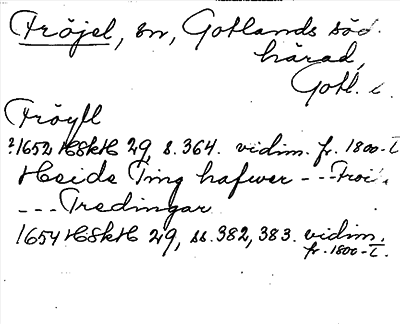 Fröjel, sn, Gotlands söd.
härad,
Gotl. l.
Fröyfl
?1652 HSkH 29, s. 364. vidim. fr. 1800-t.
Heide Ting hafwer --- Froi.
--- Tredingar
1654 HSkH 29, ss. 382, 383. vidim.
fr. 1800-t.